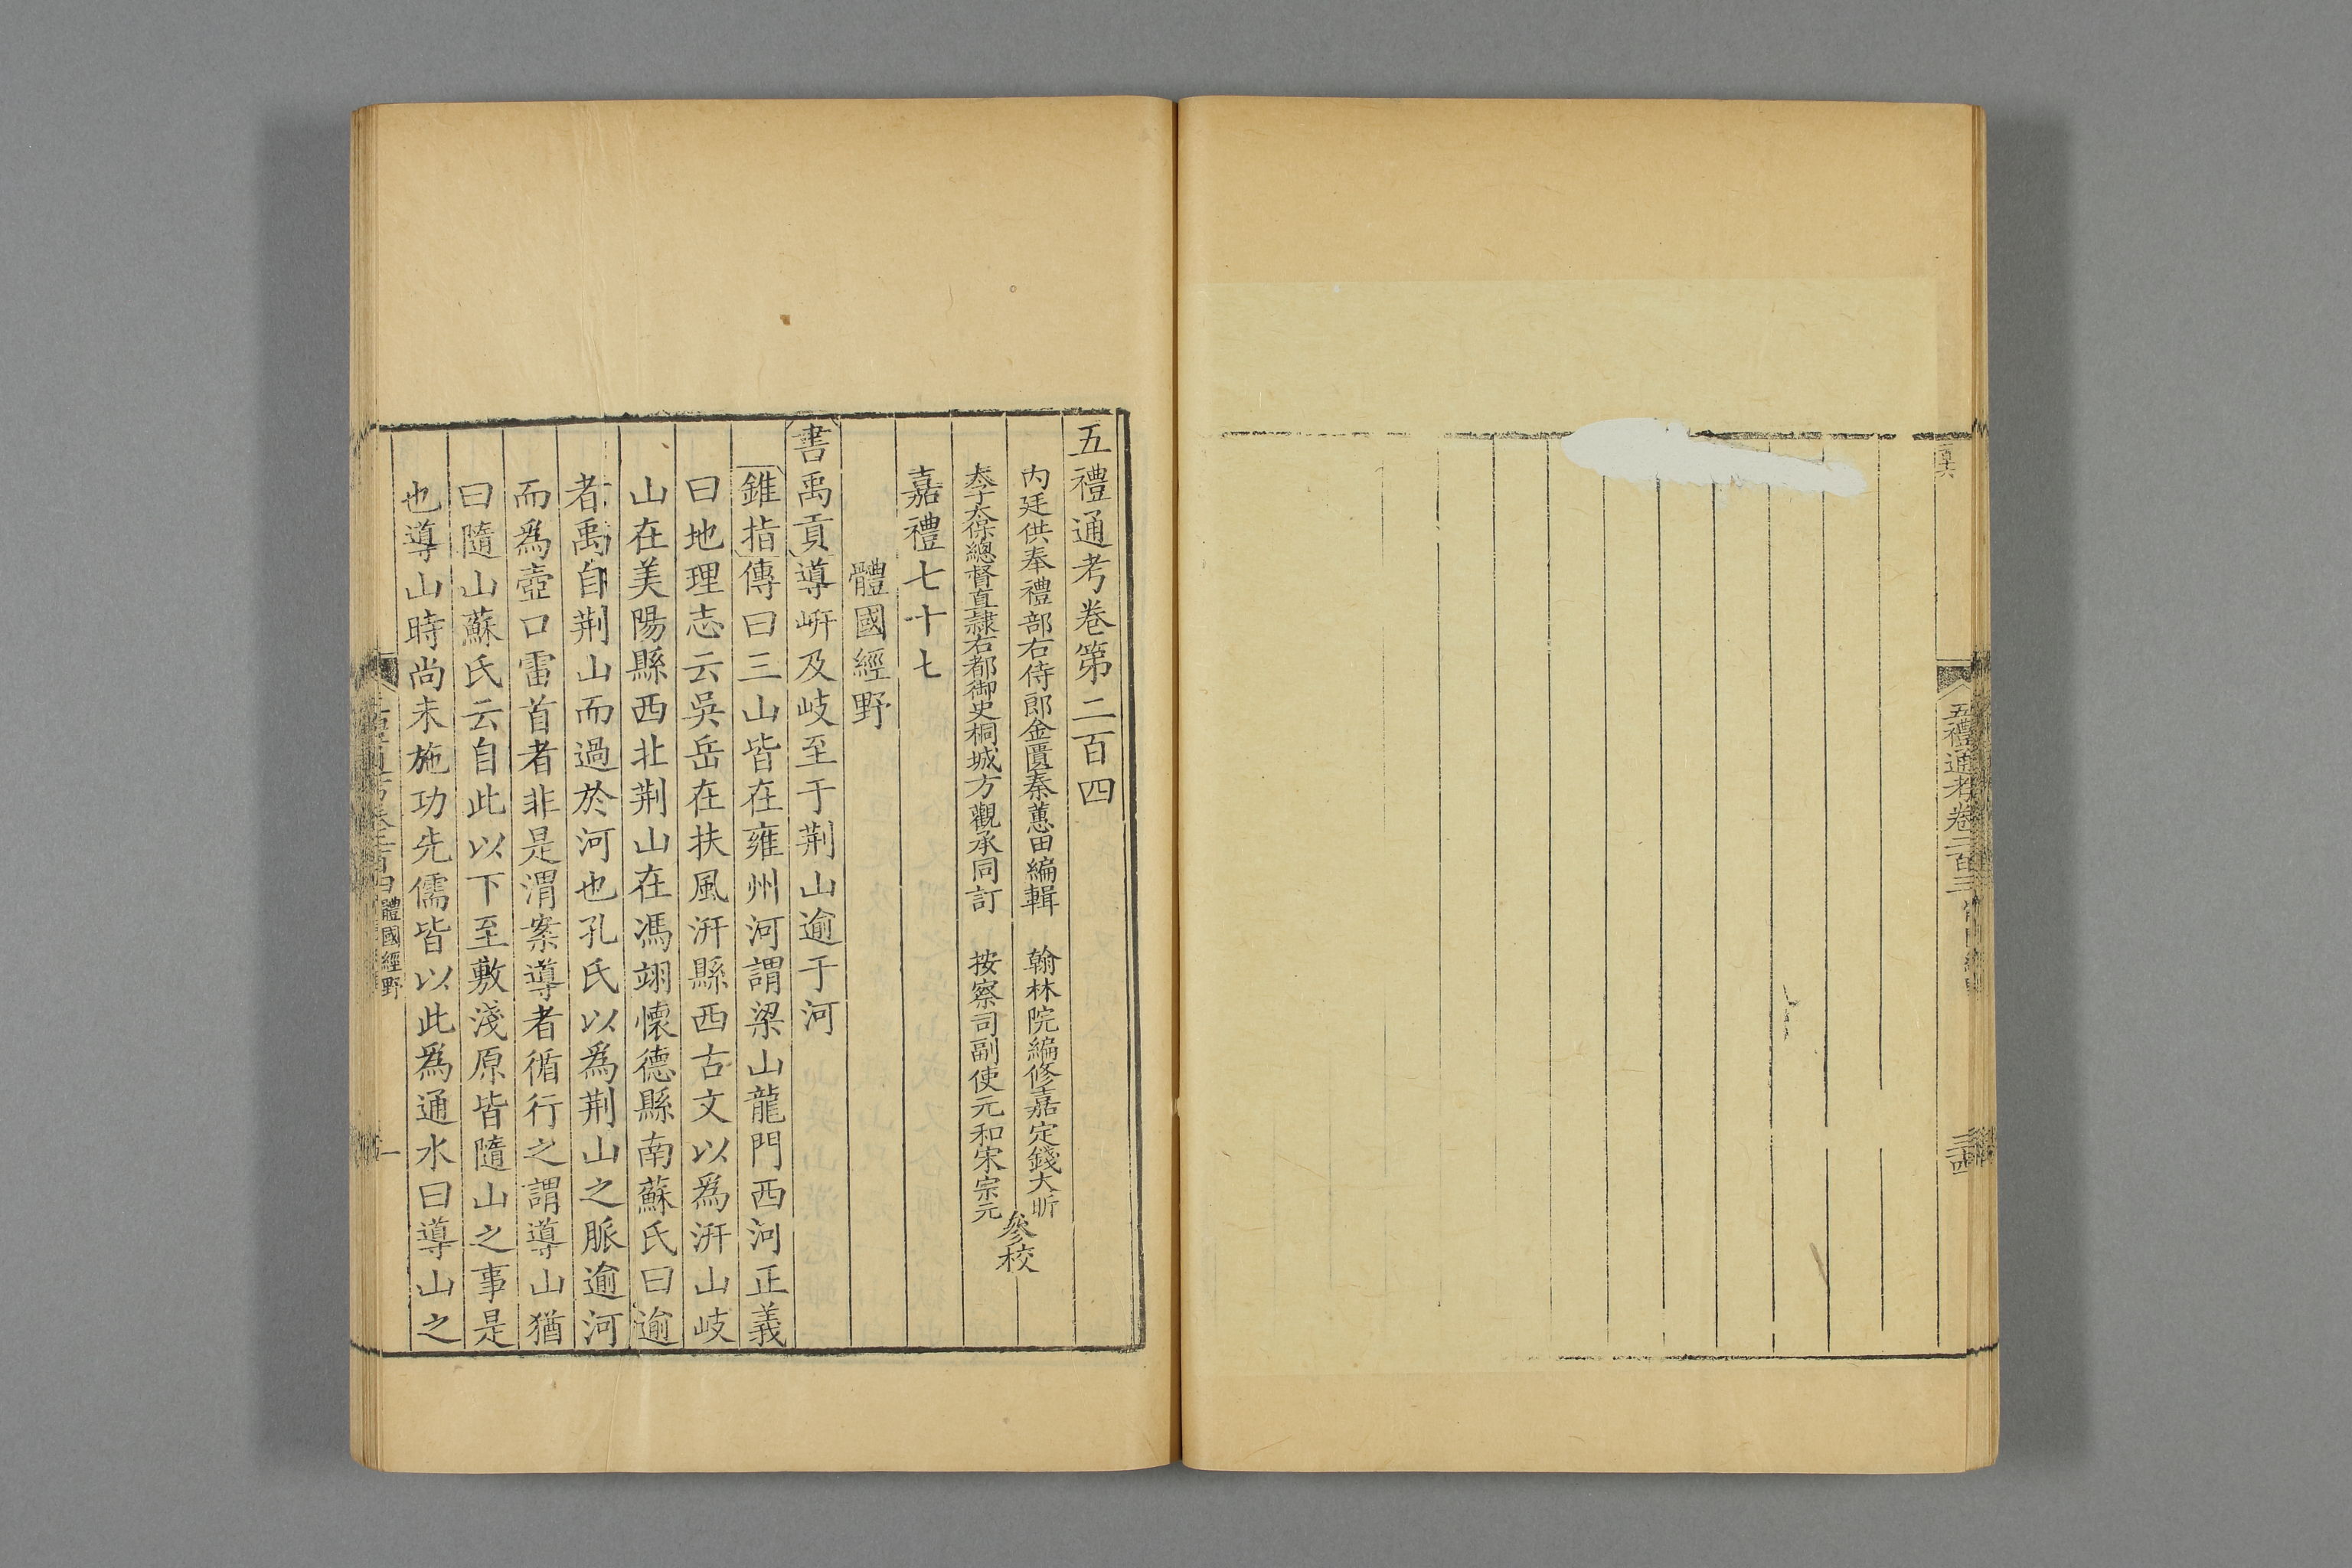 五禮通考卷二百三
三十四
五禮通考卷第二百四
內廷供奉禮部右侍郎金匱秦蕙田編輯　翰林院編修嘉定錢大昕
太子太保總督直隷右都御史桐城方觀承同訂　按察司副使元和宋宗元
參校
嘉禮七十七
體國經野
書禹貢導岍及岐至于荆山逾于河
錐指傳曰三山皆在雍州河謂梁山龍門西河正義
曰地理志云吳岳在扶風汧縣西古文以爲汧山岐
山在美陽縣西北荆山在馮翊懷德縣南蘇氏曰逾
者禹自荆山而過於河也孔氏以爲荆山之脈逾河
而爲壺口雷首者非是渭案導者循行之謂導山猶
曰隨山蘇氏云自此以下至敷淺原皆隨山之事是
也導山時尚未施功先儒皆以此爲通水曰導山之
體國經野
一